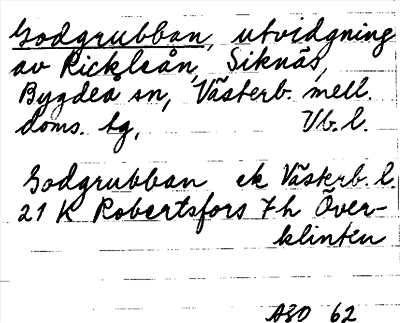 Godgrubban, utvidgning
av Rickleån, Siknäs,
Bygdeå sn, Västerb. mell.
doms. tg, Vb. l.
Godgrubban ek Västerb. l.
21 K Robertsfors 7h Över-
klinten
ASO 62